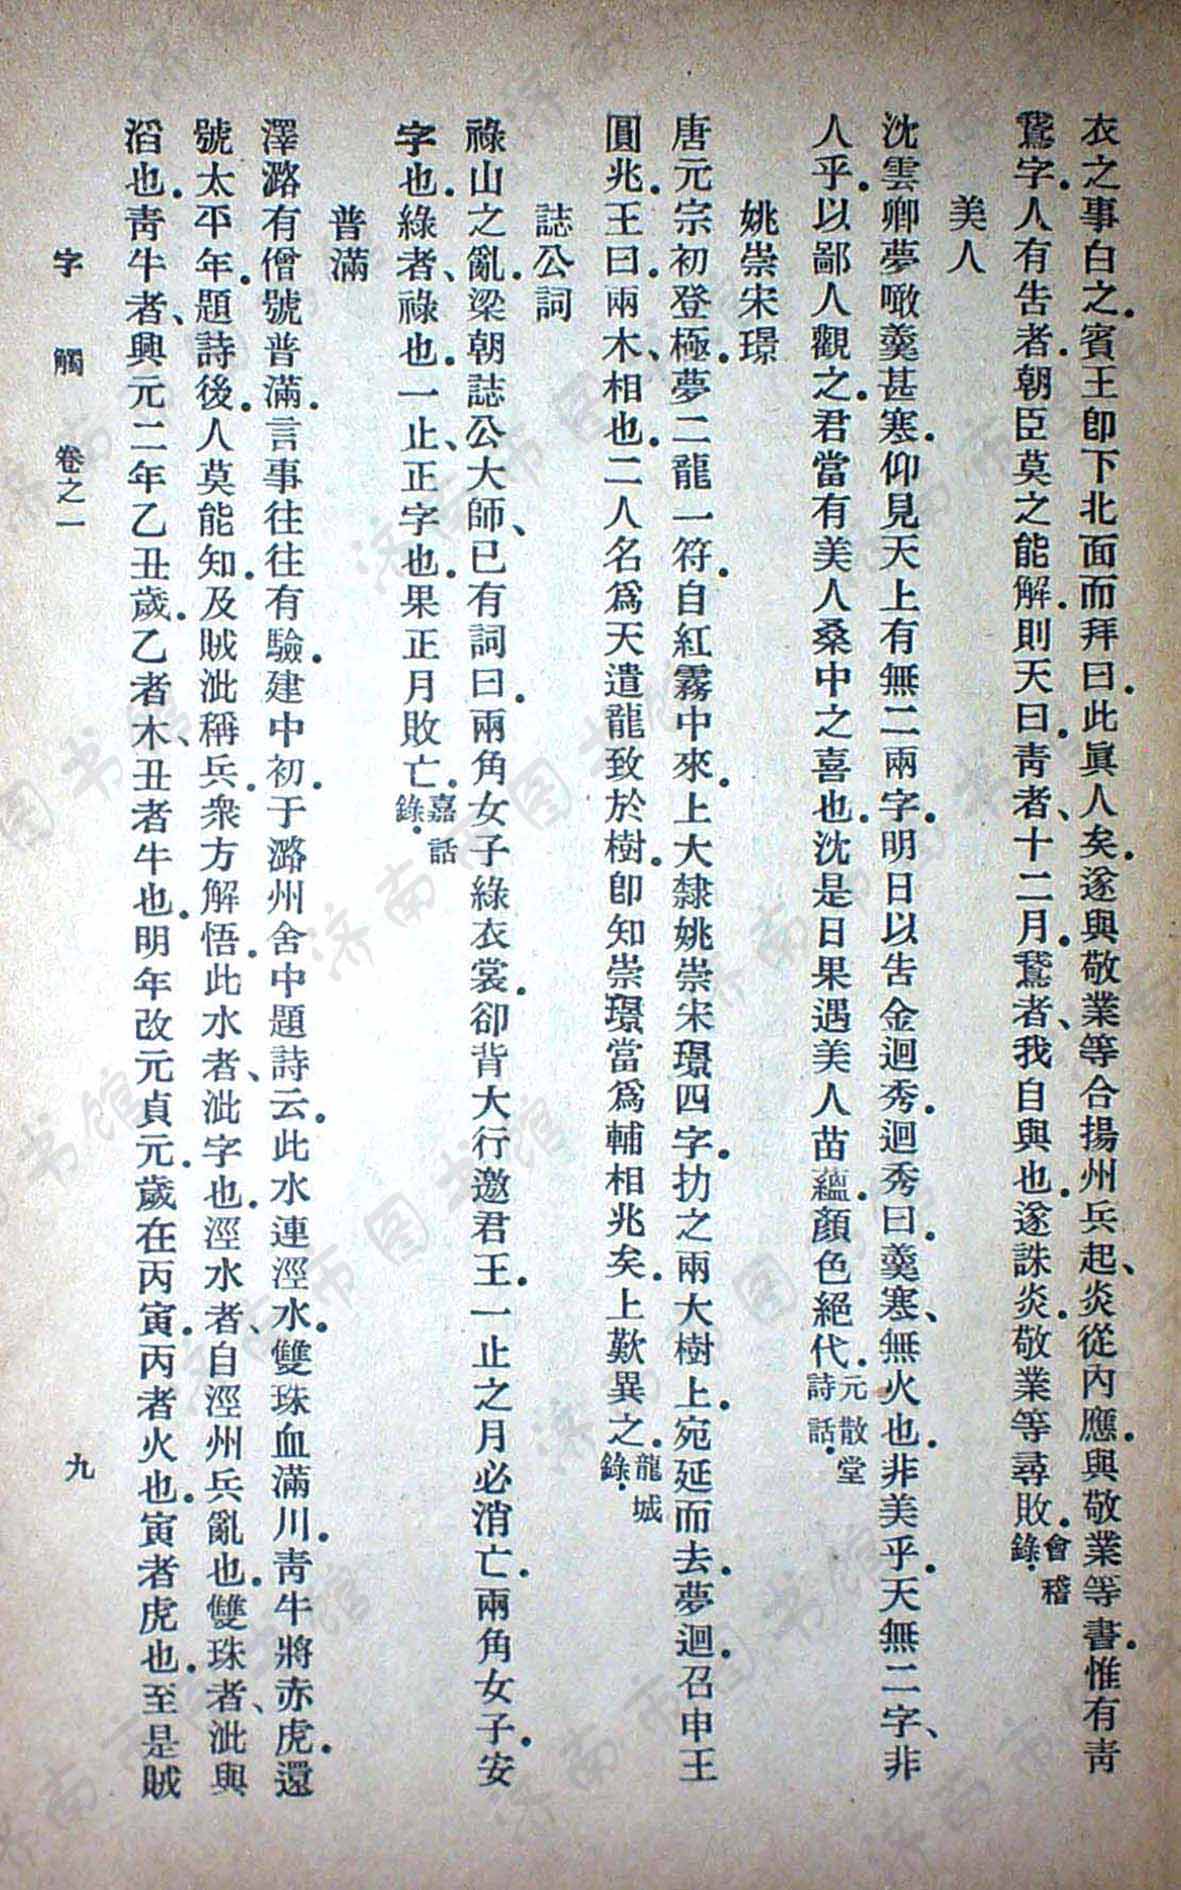 衣之事白之。賓王卽下北面而拜曰。此眞人矣。遂與敬業等合揚州兵起、炎從內應。與敬業等書。惟有靑
鵞字。人有吿者。朝臣莫之能解。則天曰。靑者、十二月。鵞者、我自與也。遂誅炎。敬業等尋敗。會稽錄。
美人
沈雲卿夢噉羹甚寒。仰見天上有無二兩字。明日以吿金迴秀。迴秀曰。羹寒、無火也。非美乎。天無二字、非
人乎。以鄙人觀之。君當有美人桑中之喜也。沈是日果遇美人苗蘊。顏色絕代。元散堂詩話。
姚崇宋璟
唐元宗初登極。夢二龍一符。自紅霧中來。上大隸姚崇宋璟四字。扐之兩大樹上。宛延而去。夢迴。召申王
圓兆。王曰。兩木、相也。二人名爲天遣龍致於樹。卽知崇璟當爲輔相兆矣。上歎異之。龍城錄。
誌公詞
祿山之亂。梁朝誌公大師、已有詞曰。兩角女子綠衣裳。卻背大行邀君王。一止之月必消亡。兩角女子。安
字也。綠者、祿也。一止、正字也。果正月敗亡。嘉話錄。
普滿
澤潞有僧號普滿。言事往往有驗。建中初。于潞州舍中題詩云。此水連涇水。雙珠血滿川。靑牛將赤虎。還
號太平年。題詩後。人莫能知。及賊泚稱兵。衆方解悟。此水者、泚字也。涇水者、自涇州兵亂也。雙珠者、泚與
滔也。靑牛者、興元二年乙丑歲。乙者木、丑者牛也。明年改元貞元。歲在丙寅。丙者火也。寅者虎也。至是賊
字觸 卷之一 九
济南市图书馆